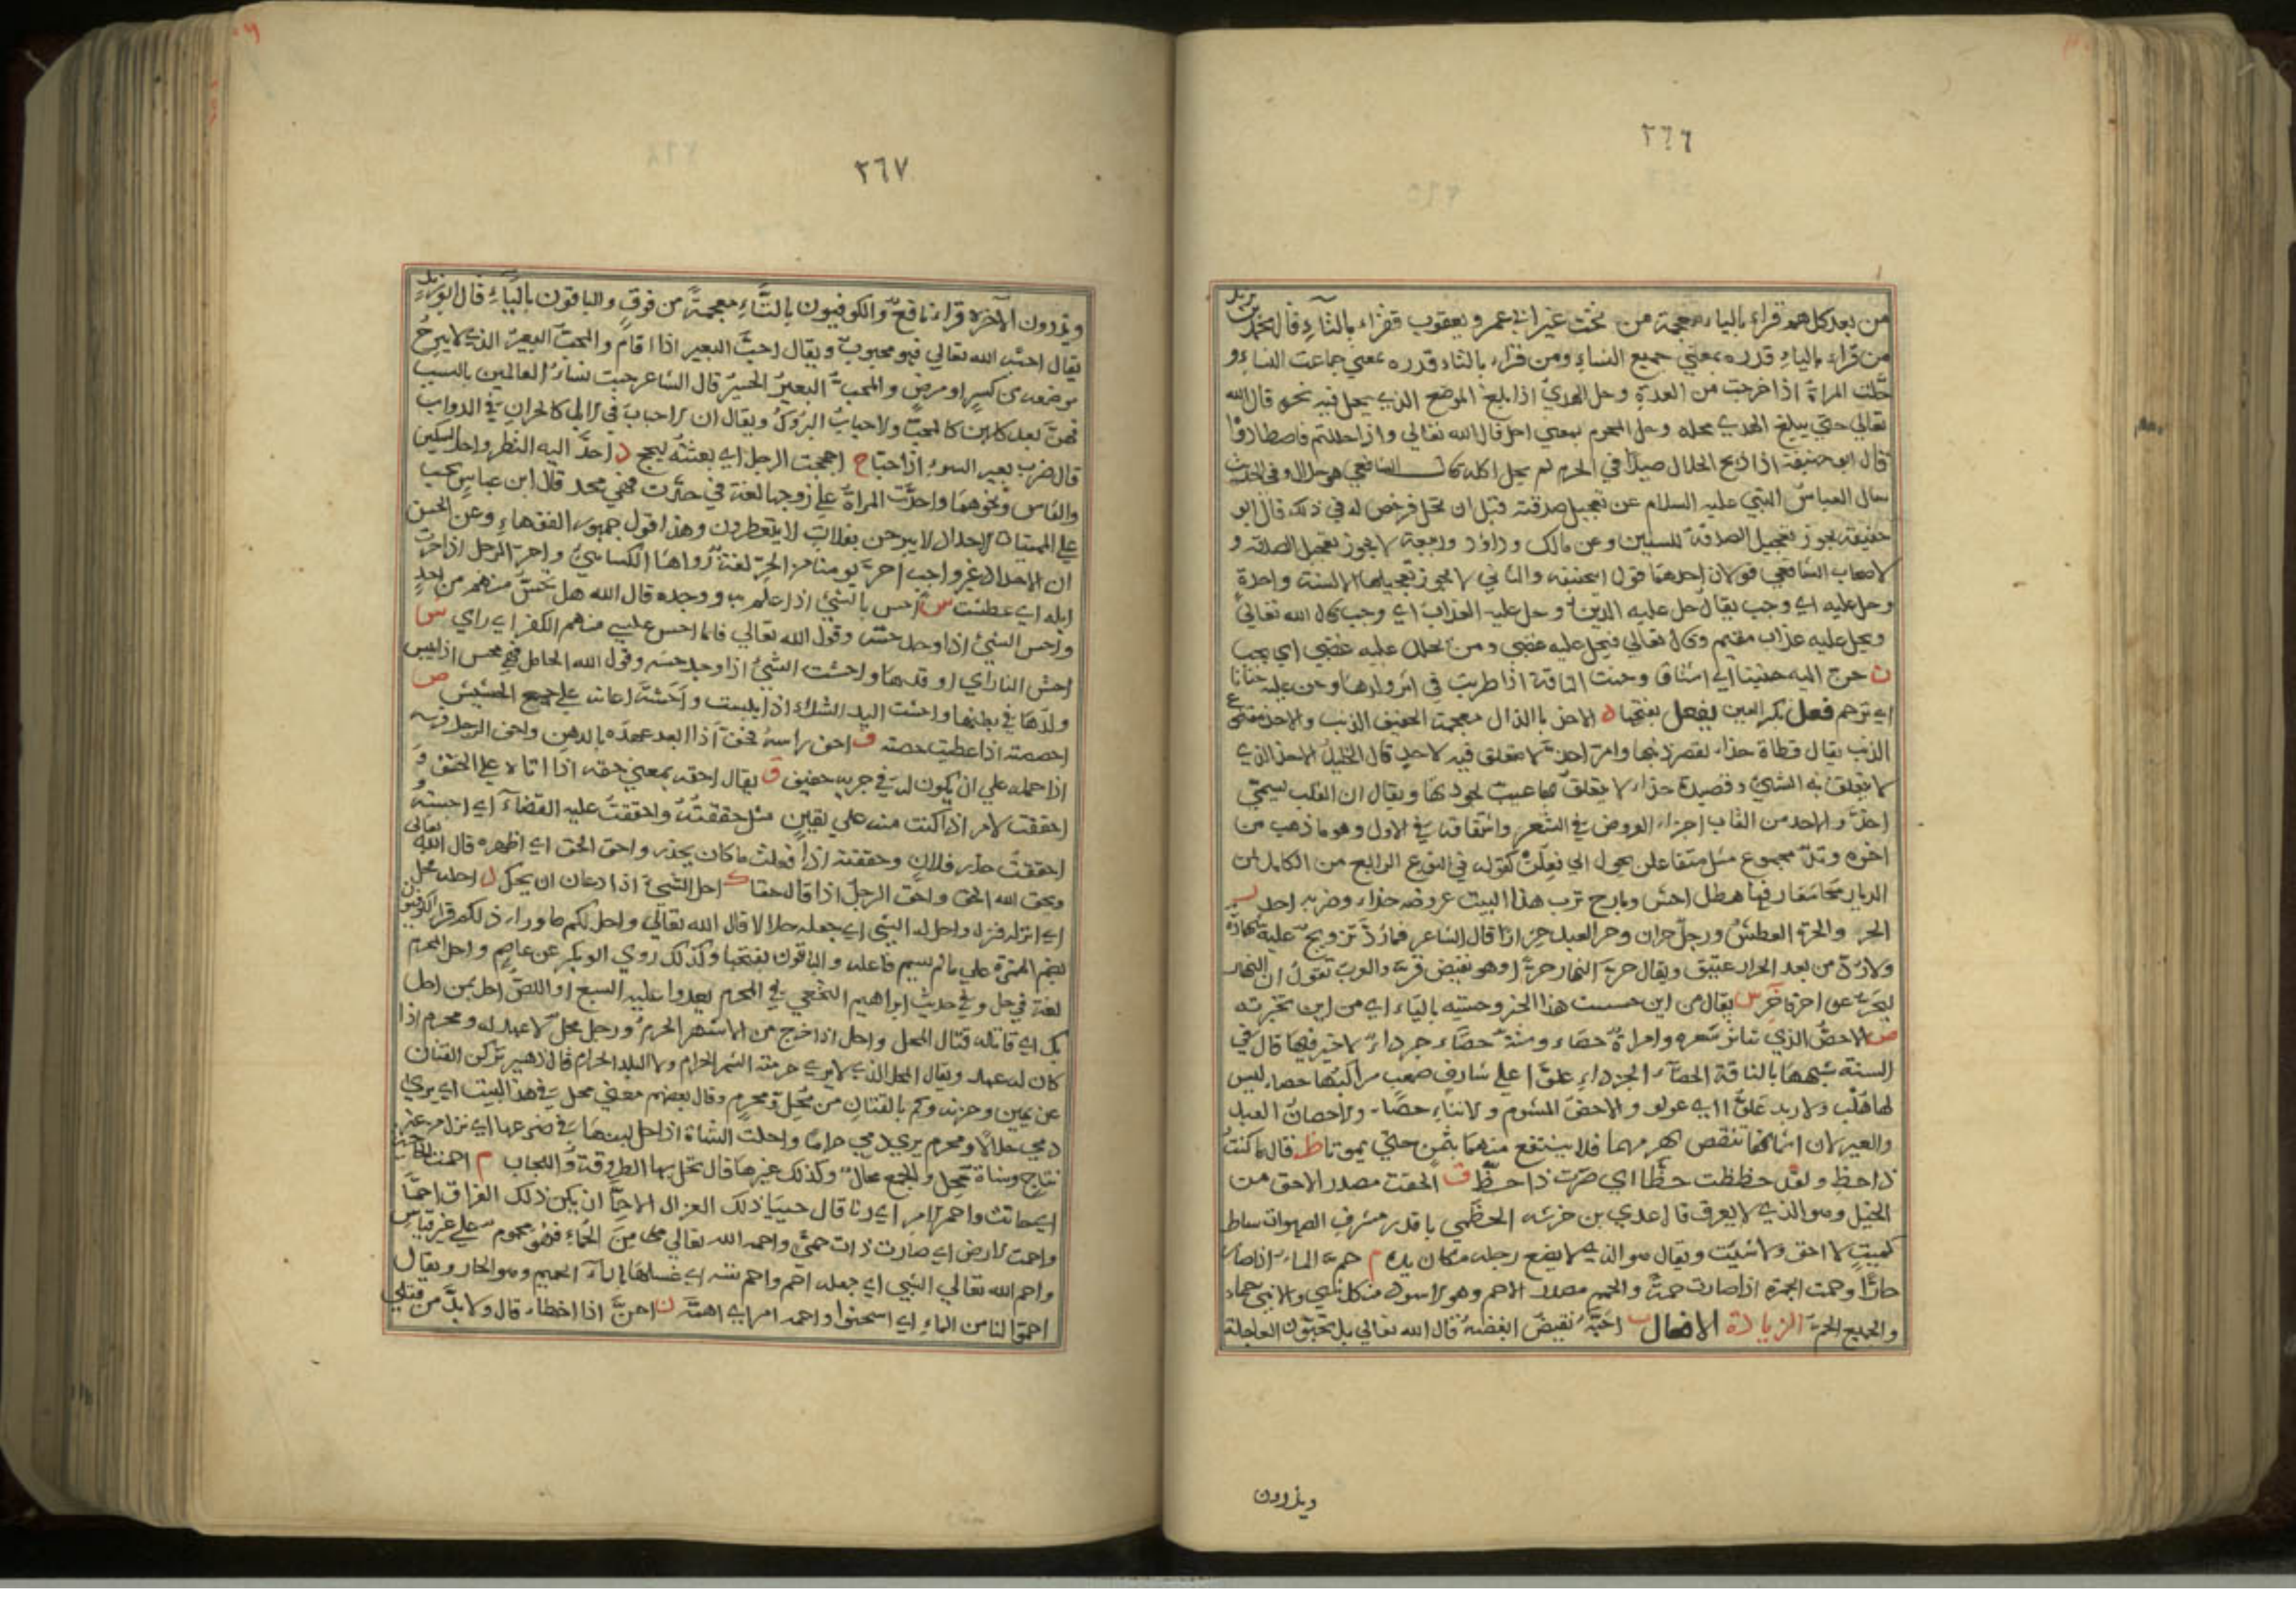 ٢٦٦
من بعد كلهم قراء بالياء معجمة من تحت غير ابي عمر و يعقوب فقراء بالتاء قال محمد بن يزيد
من قراء بالياء قدره بمعني جميع النساء ومن قراء بالتاء قدره بمعني جماعت النساء و
حلت المراة اذا خرجت من العدة وحل الهدي اذا بلغ الموضع الذي يحل فيه نحره قال الله
تعالي حتي يبلغ الهدي محله وحل المحرم بمعني احل قال الله تعالي واذا حللتم فاصطادوا
قال ابو حنيفة اذا ذبح الحلال صيدا في الحرم لم يحل اكله قال الشافعي هو حلال وفي الحديث
سال العباس النبي عليه السلام عن تعجيل صدقته قبل ان تحل فرخص له في ذلك قال ابو
حنيفة يجوز تعجيل الصدقة للسنين وعن مالك وداؤد وربيعة لا يجوز تعجيل الصدقه و
لاصحاب الشافعي قولان احدهما قول ابيحنيفه والثاني لا يجوز تعجيلها الا لسنة واحدة
وحل عليه اي وجب يقال حل عليه الدين وحل عليه العذاب اي وجب قال الله تعالي
ويحل عليه عذاب مقيم وقال تعالي فيحل عليه غضبي ومن يحلل عليه غضبي اي يجب
ن حن اليه حنينا اي اشتاق وحنت الناقة اذا طربت في اثر ولدها وحن عليه حنانا
اي ترحم فعل بكر العين يفعل بفتحها ذ الاحذ بالذال معجمة الخفيف الذنب والاحذ مقطوع
الذنب يقال قطاة حذاء لقصر ذنبها وامر احذ لا متعلق فيه لاحد قال الخليل الاحذ الذي
لا يتعلق به الشيء وقصيدة حذاء لا يتعلق بها عيب لجودتها ويقال ان القلب يسمي
احذ والاحذ من القاب اجزاء العروض في الشعر واشتقاقه في الاول وهو ما ذهب من
اخره وتد مجموع مثل متفاعلن يحول الي فعلن كقوله في النوع الرابع من الكامل لمن
الديار محا معارفها هطل اجش وبارح ترب هذا البيت عروضه حذاء وضربه احذ
الحر والحرة العطش ورجل حران وحر العبد حرارا قال الشاعر فما رد تزويج عليه شهادة
ولا رد من بعد الحرار عتيق ويقال حر النهار حرة وهو نقيض قر والعرب تقول ان النهار
ليحر علي اخره خر س يقال من اين حسست هذا الخبر وحسيته بالياء اي من اين تخبرته
ص الاحص الذي تناثر شعره وامراة حصاء وسنة حصاء جرداء لا خير فيها قال في
السنة شبهها بالناقة الحصاء الجرداء علوا علي شارف صعب مراكبها حصاء ليس
لها هلب ولا وبد علوا اي عولو والاحص المشوم ولانثاء حصاء والاحصان العبد
والعير لان اثمانهما تنقص بهرمهما فلا ينتفع منهما بثمن حتي يموتا ظ يقال ما كنت
ذا حظ ولقد حظظت حظا اي صرت ذا حظ ق الحقت مصدر الاحق من
الخيل وهو الذي لا يعرق قال عدي بن خرشه الخطمي باقدر مشرف الصهوات ساط
كميت لا احق ولا شئيت ويقال هو الذي لا يضع رجله مكان يده م حم الماء اذا صار
حارا وحمت الجمرة اذا صارت حمة والحمم مصدر الاحم وهو الاسود من كل شي والانثي حماء
والجميع الحم الزيادة الافعال ب احبه نقيض ابغضه قال الله تعالي بل تحبون العاجلة
ويذرون
٢٦٧
ويذرون الاخره قراء نافع والكوفيون بالتاء معجمة من فوق والباقون بالياء قال ابو زيد
يقال احبه الله تعالي فهو محبوب ويقال احب البعير اذا اقام والمحب البعير الذي لا يبرح
موضعه من كسر او مرض والمحب البعير الحسير قال الشاعر جبت نساء العالمين بالسبب
فهن بعد كلهن كالمحب والاحباب البروك ويقال ان الاحباب في الابل كالحران في الدواب
قال ضرب بعير السوء اذ احبا ج احججت الرجل اي بعثته ليحج د احد اليه النظر واحد السكين
والفاس ونحوهما واحدت المراة علي زوجها لغة في حدت فهي محد قال ابن عباس يجب
علي المبتات الاحداد لا يبرحن بغلاب لا يتعطرون وهذا قول جمهور الفقهاء وعن الحسن
ان الاحداد غير واجب احر يومنا من الحر لغة رواها الكسائي واحر الرجل اذا حرت
ابله اي عطشت س احس بالشي اذا علم به ووجده قال الله هل تحس منهم من احد
واحس الشي اذا وجد حسه وقول الله تعالي فلما احس عليسي منهم الكفر اي راي س
احش النار اي اوقدها واحشت الشي اذا وجد حسه وقول الله الحامل فهي محس اذا يبس
ولدها في بطنها واحشت اليد الشلاء اذا يبست واحشه اعانه علي جمع الحشيش ص
احصصته اذا عطيت حصته ف احف راسه فحف اذا ابعد عهده بالدهن واحف الرجل فرسه
اذا حمله علي ان يكون له في جريه حفيف ق يقال احقه بمعني حقه اذا اتاه علي الحق و
احققت الامر اذا كنت منه علي يقين مثل حققته واحققت عليه القضاء اي اوجبته
احققت حذر فلان وحققته اذا فعلت ما كان يحذر واحق الحق اي اظهره قال الله تعالي
ويحق الله الحق واحق الرجل اذا قال حقا ك احل الشي اذا دعان ان يحكل ل احله محل
اي انزله فنزل واحل له الشي اي جعله حلالا قال الله تعالي واحل لكم ما وراء ذلكم قراء الكوفيون
بضم الهمزة علي ما لم يسم فاعله والباقون بفتحها وكذلك روي ابو بكر عن عاصم واحل المحرم
لغة في حل وفي حديث ابراهيم النخعي في المحرم يعدوا عليه السبع او اللص احل بمن احل
بك اي قاتله قتال المحل واحل اذا خرج من الاشهر الحرم ورجل محل لا عهد له ومحرم اذا
كان له عهد ويقال المحل الذي لا يري حرمة الشهر الحرام ولا البلد الحرام قال زهير تركن القنان
عن يمين وحزنه وكم بالقنان من محل ومحرم وقال بعضهم معني محل في هذا البيت اي يري
دمي حلالا ومحرم يري دمي حراما واحلت الشاة اذا حل لبنها في ضرعها اي نزل من غير
نتاج وشاة محل والجمع محال وكذلك غيرها قال تحل بها الطروقة واللجاب م احمت الحاجة
اي حانت واحم الامر اي دنا قال حييا ذلك الغزال الاحما ان يكن ذلك الفراق احما
واحمت الارض اي صارت ذات حمي واحمه الله تعالي من الحماء فهو محموم علي غير قياس
واحم الله تعالي الشي اي جعله احم واحم نفسه اي غسلها بالماء الحميم وهو الحار ويقال
احموا لنا من الماء اي اسخنوا واحمه امر اي اهمه ن احن اذا اخطاء قال ولا بد من قتلي